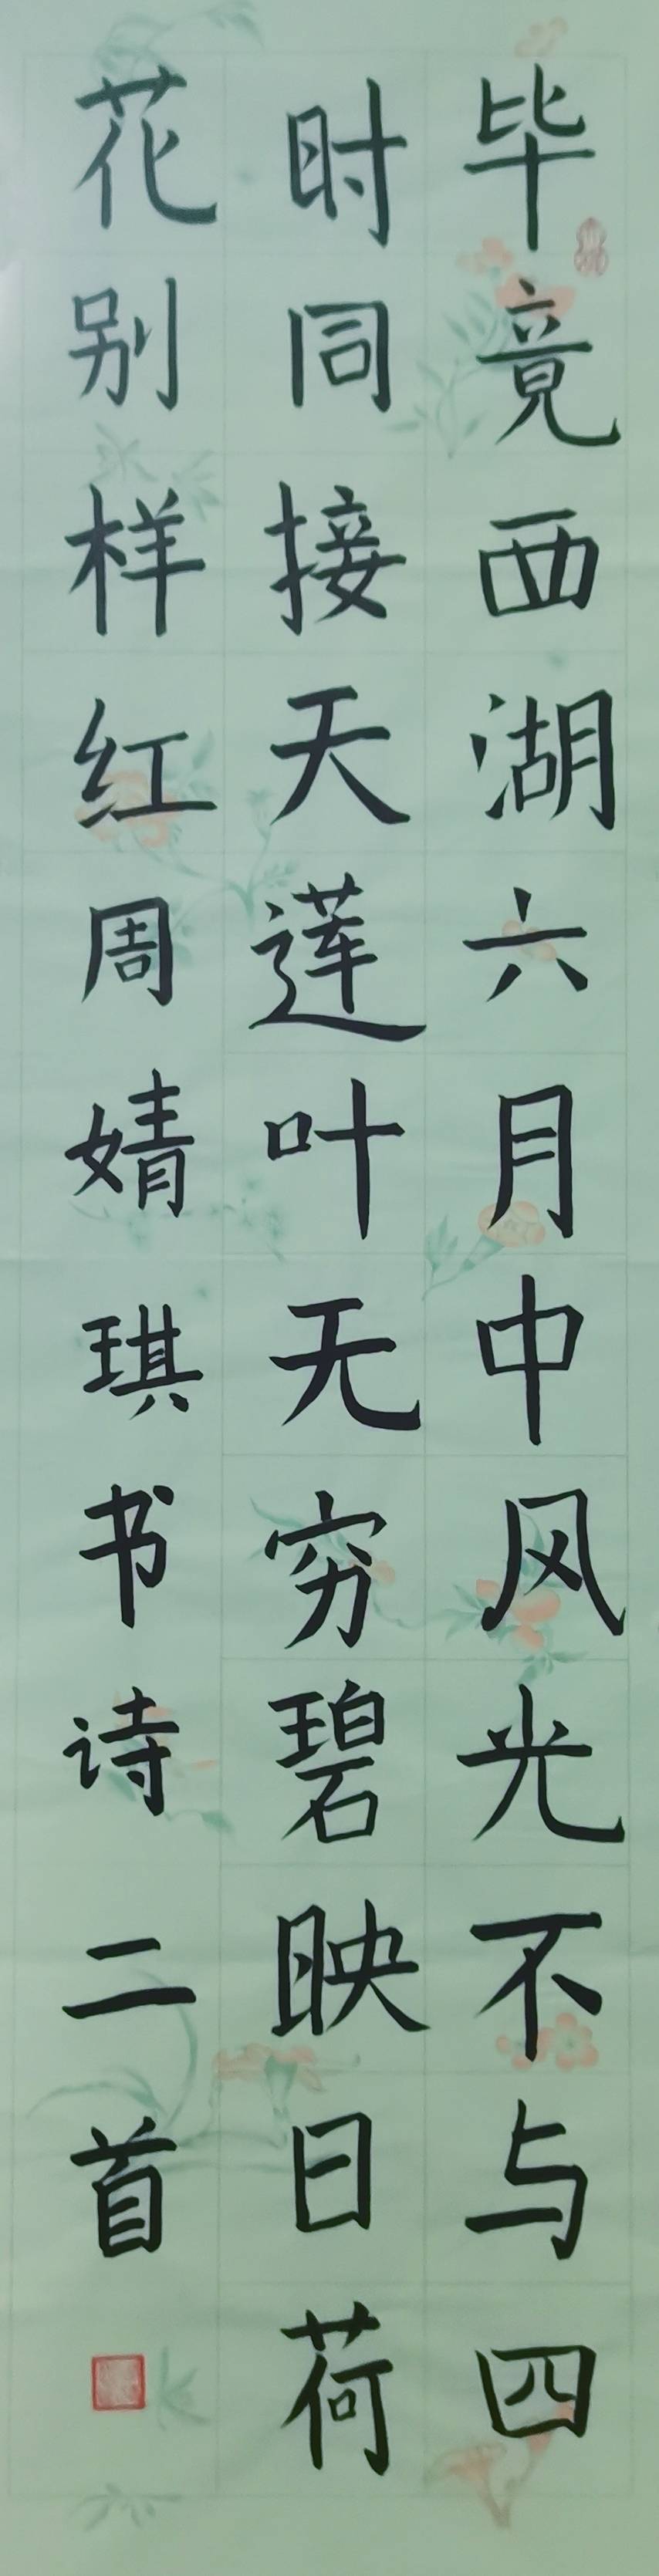 毕竟西湖六月中风光不与四
时同接天莲叶无穷碧映日荷
花别样红周婧琪书诗二首